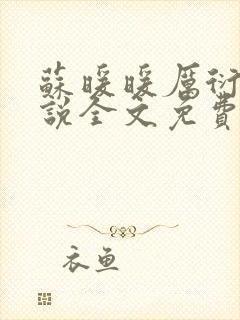 蘇暖暖厲衍
說全文免費
衣魚